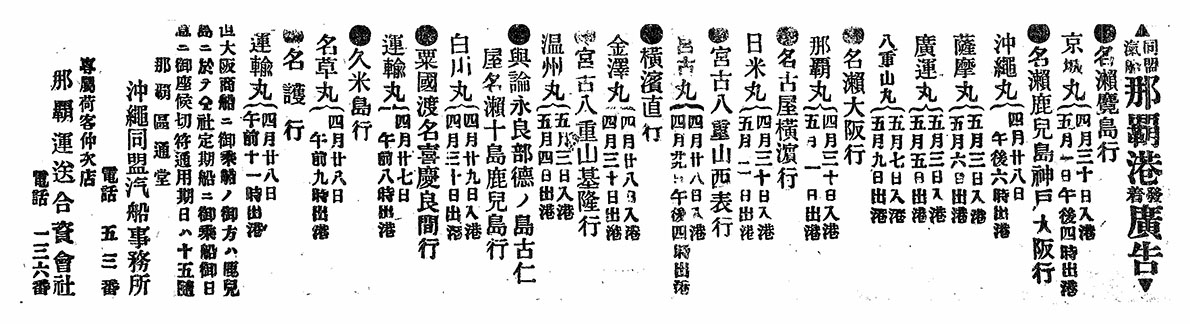 ▲同盟汽船那覇港發着廣告▼
●名瀬鹿兒島行
京城丸
四月三十日入港
五月一日午後四時出港
●名瀬鹿兒島神戸大阪行
沖繩丸
四月廿八日
午後六時出港
薩摩丸
五月三日入港
五月六日出港
廣運丸
四月三日入港
五月五日出港
八重山丸
五月七日入港
五月九日出港
●名瀬大阪行
那覇丸
四月三十日入港
五月一日出港
●名古屋橫濱行
日米丸
四月三十日入港
五月一日出港
●宮古八重山西表行
宮古丸
四月廿八日入港
四月廿九日午後四時出港
●橫濱直行
金澤丸
四月廿八日入港
四月三十日出港
●宮古八重山基隆行
温州丸
五月三日入港
五月四日出港
●與論永良部德ノ島古仁
屋名瀬十島鹿兒島行
白川丸
四月廿九日入港
四月三十日出港
●粟國渡名喜慶良間行
運輸丸
四月廿七日
午前八時出港
●久米島行
名草丸
四月廿八日
午前九時出港
●名護行
運輸丸
四月廿八日
午前十一時出港
但大阪商船ニ御乘船ノ御方ハ鹿兒
島ニ於テ仝社定期船ニ御乘船御日
意ニ御座候切符通用期日ハ十五隨
那覇區通堂
沖繩同盟汽船事務所
電話 五三番
專屬荷客仲次店
那覇運送合資會社
電話 一三六番